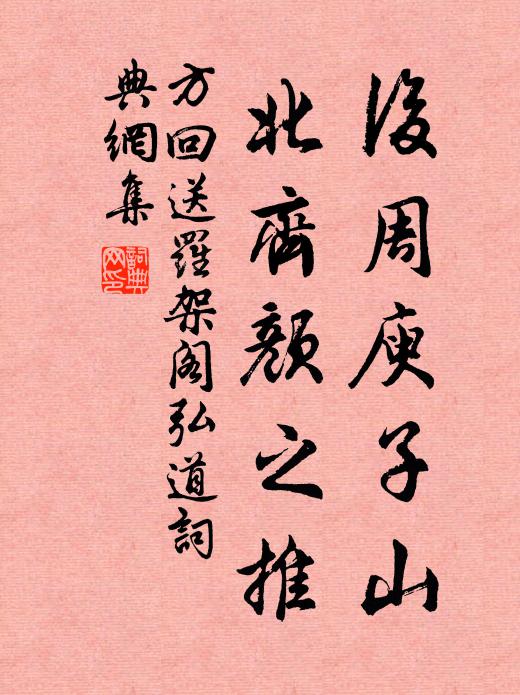 後周庾子山
北齊顏之推
方回送羅架閣弘道詞
典網集
詞典
网印